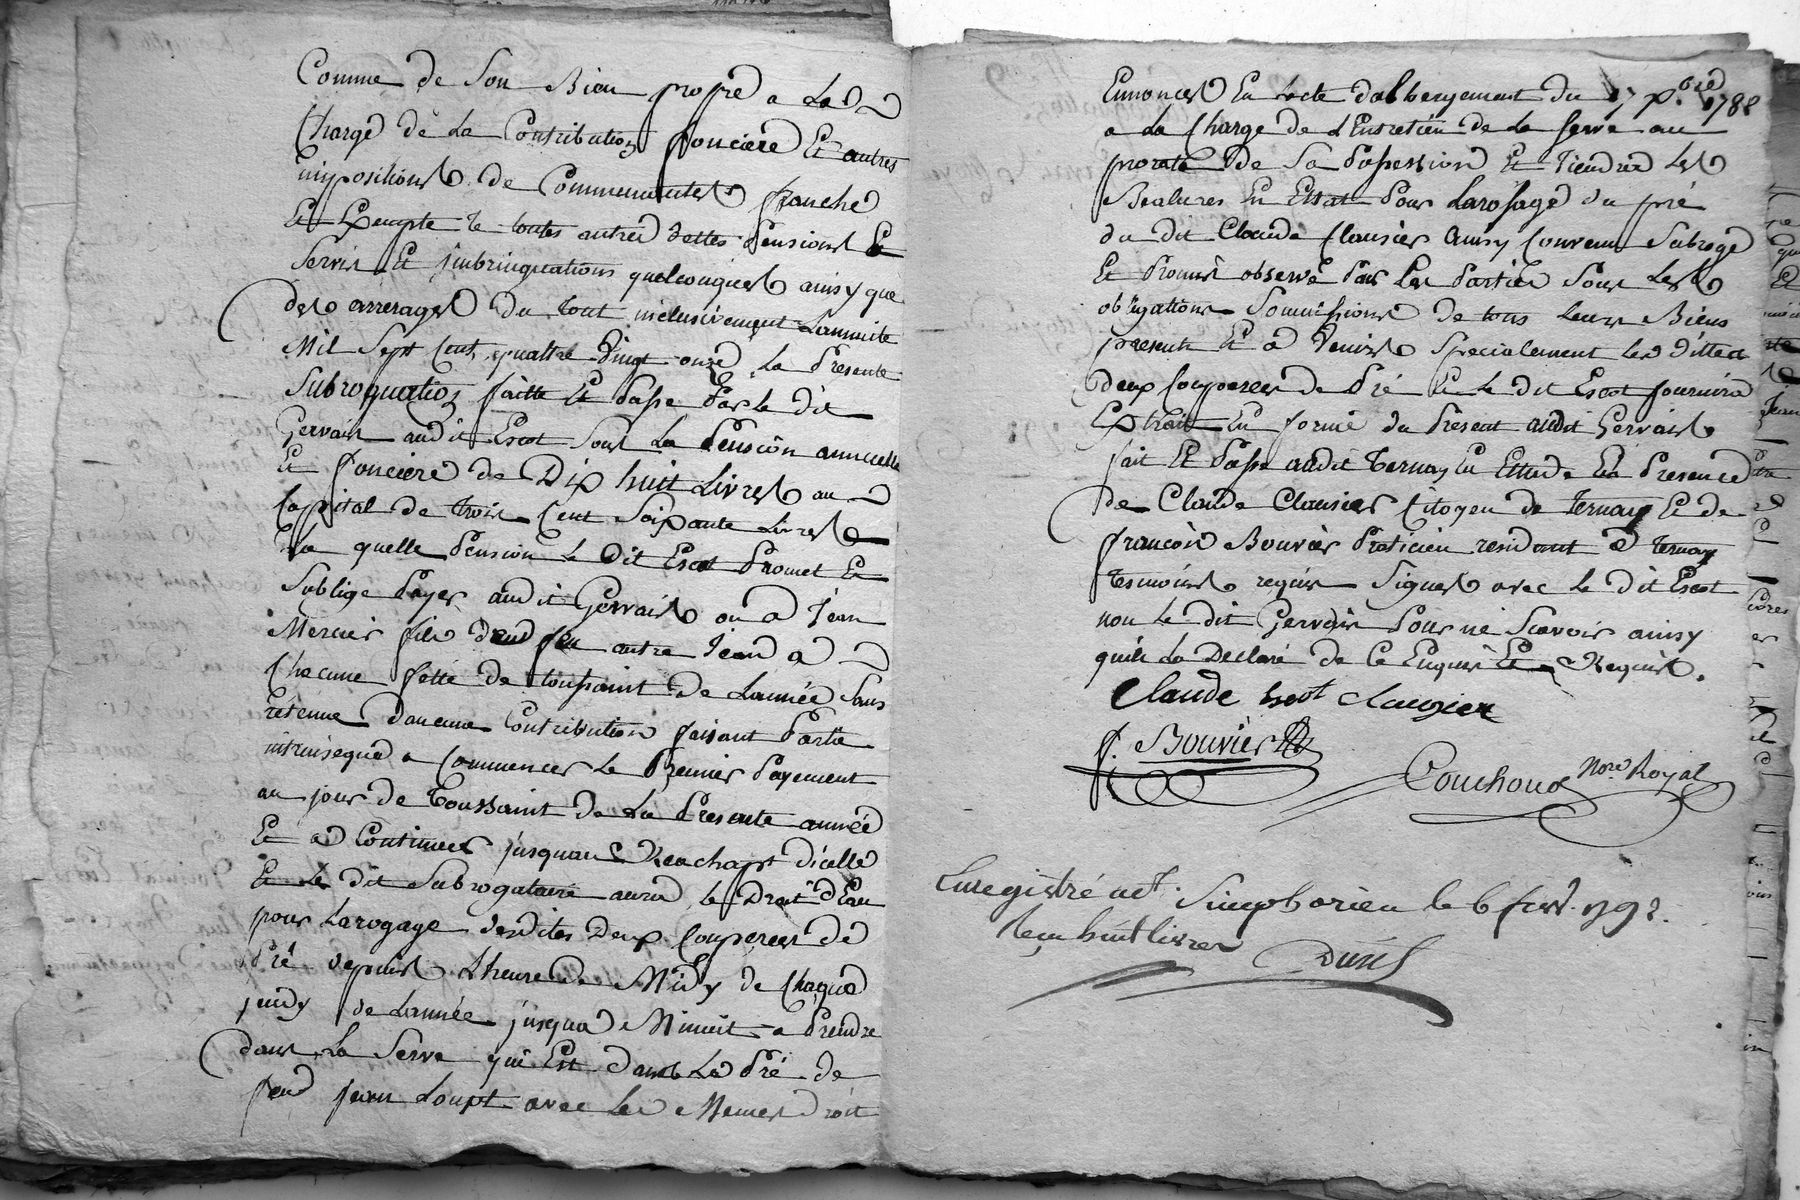 Comme de Son Bien propre a La
Charge de La Contribution fonciere Et autres
impositions de Communautes franche
Et Exempte de toutes autres dettes Pensions Et
Servis Et jmbringuations quelconques ainsy que
des arrerages du tout inclusivement Lannuite
Mil Sept Cent quattre Vingt onze La Presente
Subroguation faitte Et Passe Par Le dit
Gervais audit Escot Sous La Pension annuelle
Et fonciere de Dix huit Livres au
Cappital de Trois Cent Soixante Livres
La quelle Pension Le Dit Escot Promet Et
Soblige Payer audit Gervais ou a Jean
Mercier fils feu autre Jean a
Chacune fette de toussaint de Lannée Sans
retenue daucune Contribution faisant Partie
intrinseque a Commencer Le Premier Payement
au jour de Toussaint de La Presente année
Et a Continuer jusquau Reachapt dicelle
Et Le dit Subrogataire aura Le Droit dEau
pour Larogage desdites Deux Couperees de
Pré depuis Lheure de Midy de Chaque
jeudy de Lannée jusqua Minuit a Prendre
dans La Serve qui Est dans Le Pré de
feu jean Loupt avec Les Memes droit
Ennoncés En Lacte dalbergement du 17 1788
a La Charge de LEntretien de La Serve au
prorata de Sa Possession Et Tiendra Les
Bealures En Estat Pour Larosage du pré
du dit Claude Clausier ainsy Convenu Subrogé
Et Promis observé Par Les Parties Sous Les
obligations Soumissions de tous Leurs Biens
presents Et a Venirs Specialement Les dittes
deux Couperees de Pré Et Le dit Escot fournira
Extrait En forme du Present audit Gervais
fait Et Passe audit Ternay En Ettude En Presence
de Claude Clausier Citoyen de Ternay Et de
françois Bouvier Praticien residant a Ternay
Tesmoins requis Signes avec Le dit Escot
non Le dit Gervais Pour ne Scavoir ainsy
quil La Declaré de Ce Enquis Et Requis.
Claude Clauzier
f. Bouvier
Couchoud Nore Royal
Enregistré a St. Simphorien le 6 fevr. 1792.
Reçu huit livres